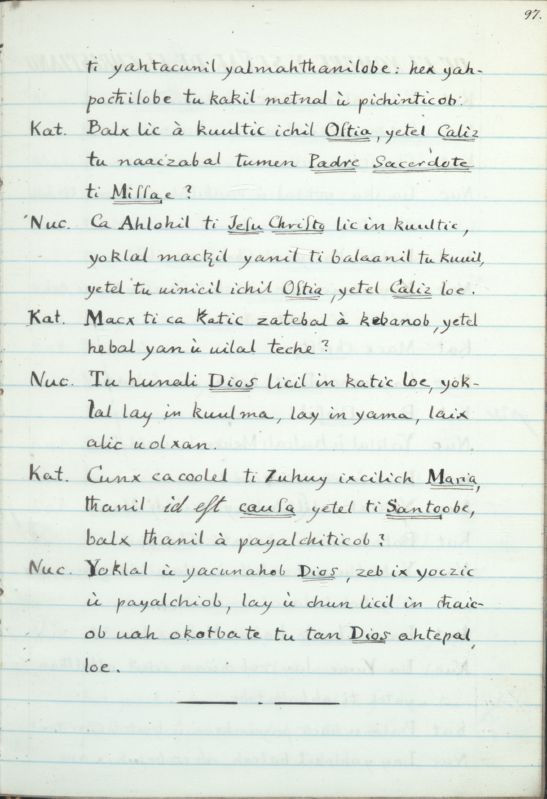 97.
ti yahtacunil yalmahthanilobe: hex yah-
pochilobe tu kakil metnal ù pichinticob.
Kat. Balx lic à kuultic ichil Ostia, yetel Caliz
tu naaczabal tumen Padre Sacerdote
ti Missae?
Nuc. Ca Ahlohil ti Jesu Christo lic in kuultic,
yoklal mactzil yanil ti balaanil tu kuuil,
yetel tu uinicil ichil Ostia, yetel Caliz loe.
Kat. Macx ti ca katic zatebal à kebanob, yetel
hebal yan ù uilal teche?
Nuc. Tu hunali Dios licil in katic loe, yok-
lal lay in kuulma, lay in yama, laix
alic uolxan.
Kat. Cunx cacoolel ti Zuhuy ixcilich Maria,
thanil id est causa yetel ti Santoobe,
balx thanil à payalchiticob?
Nuc. Yoklal ù yacunahob Dios, zeb ix yoczic
ù payalchiob, lay ù chun licil in thaic-
ob uah okotbate tu tan Dios ahtepal
loe.